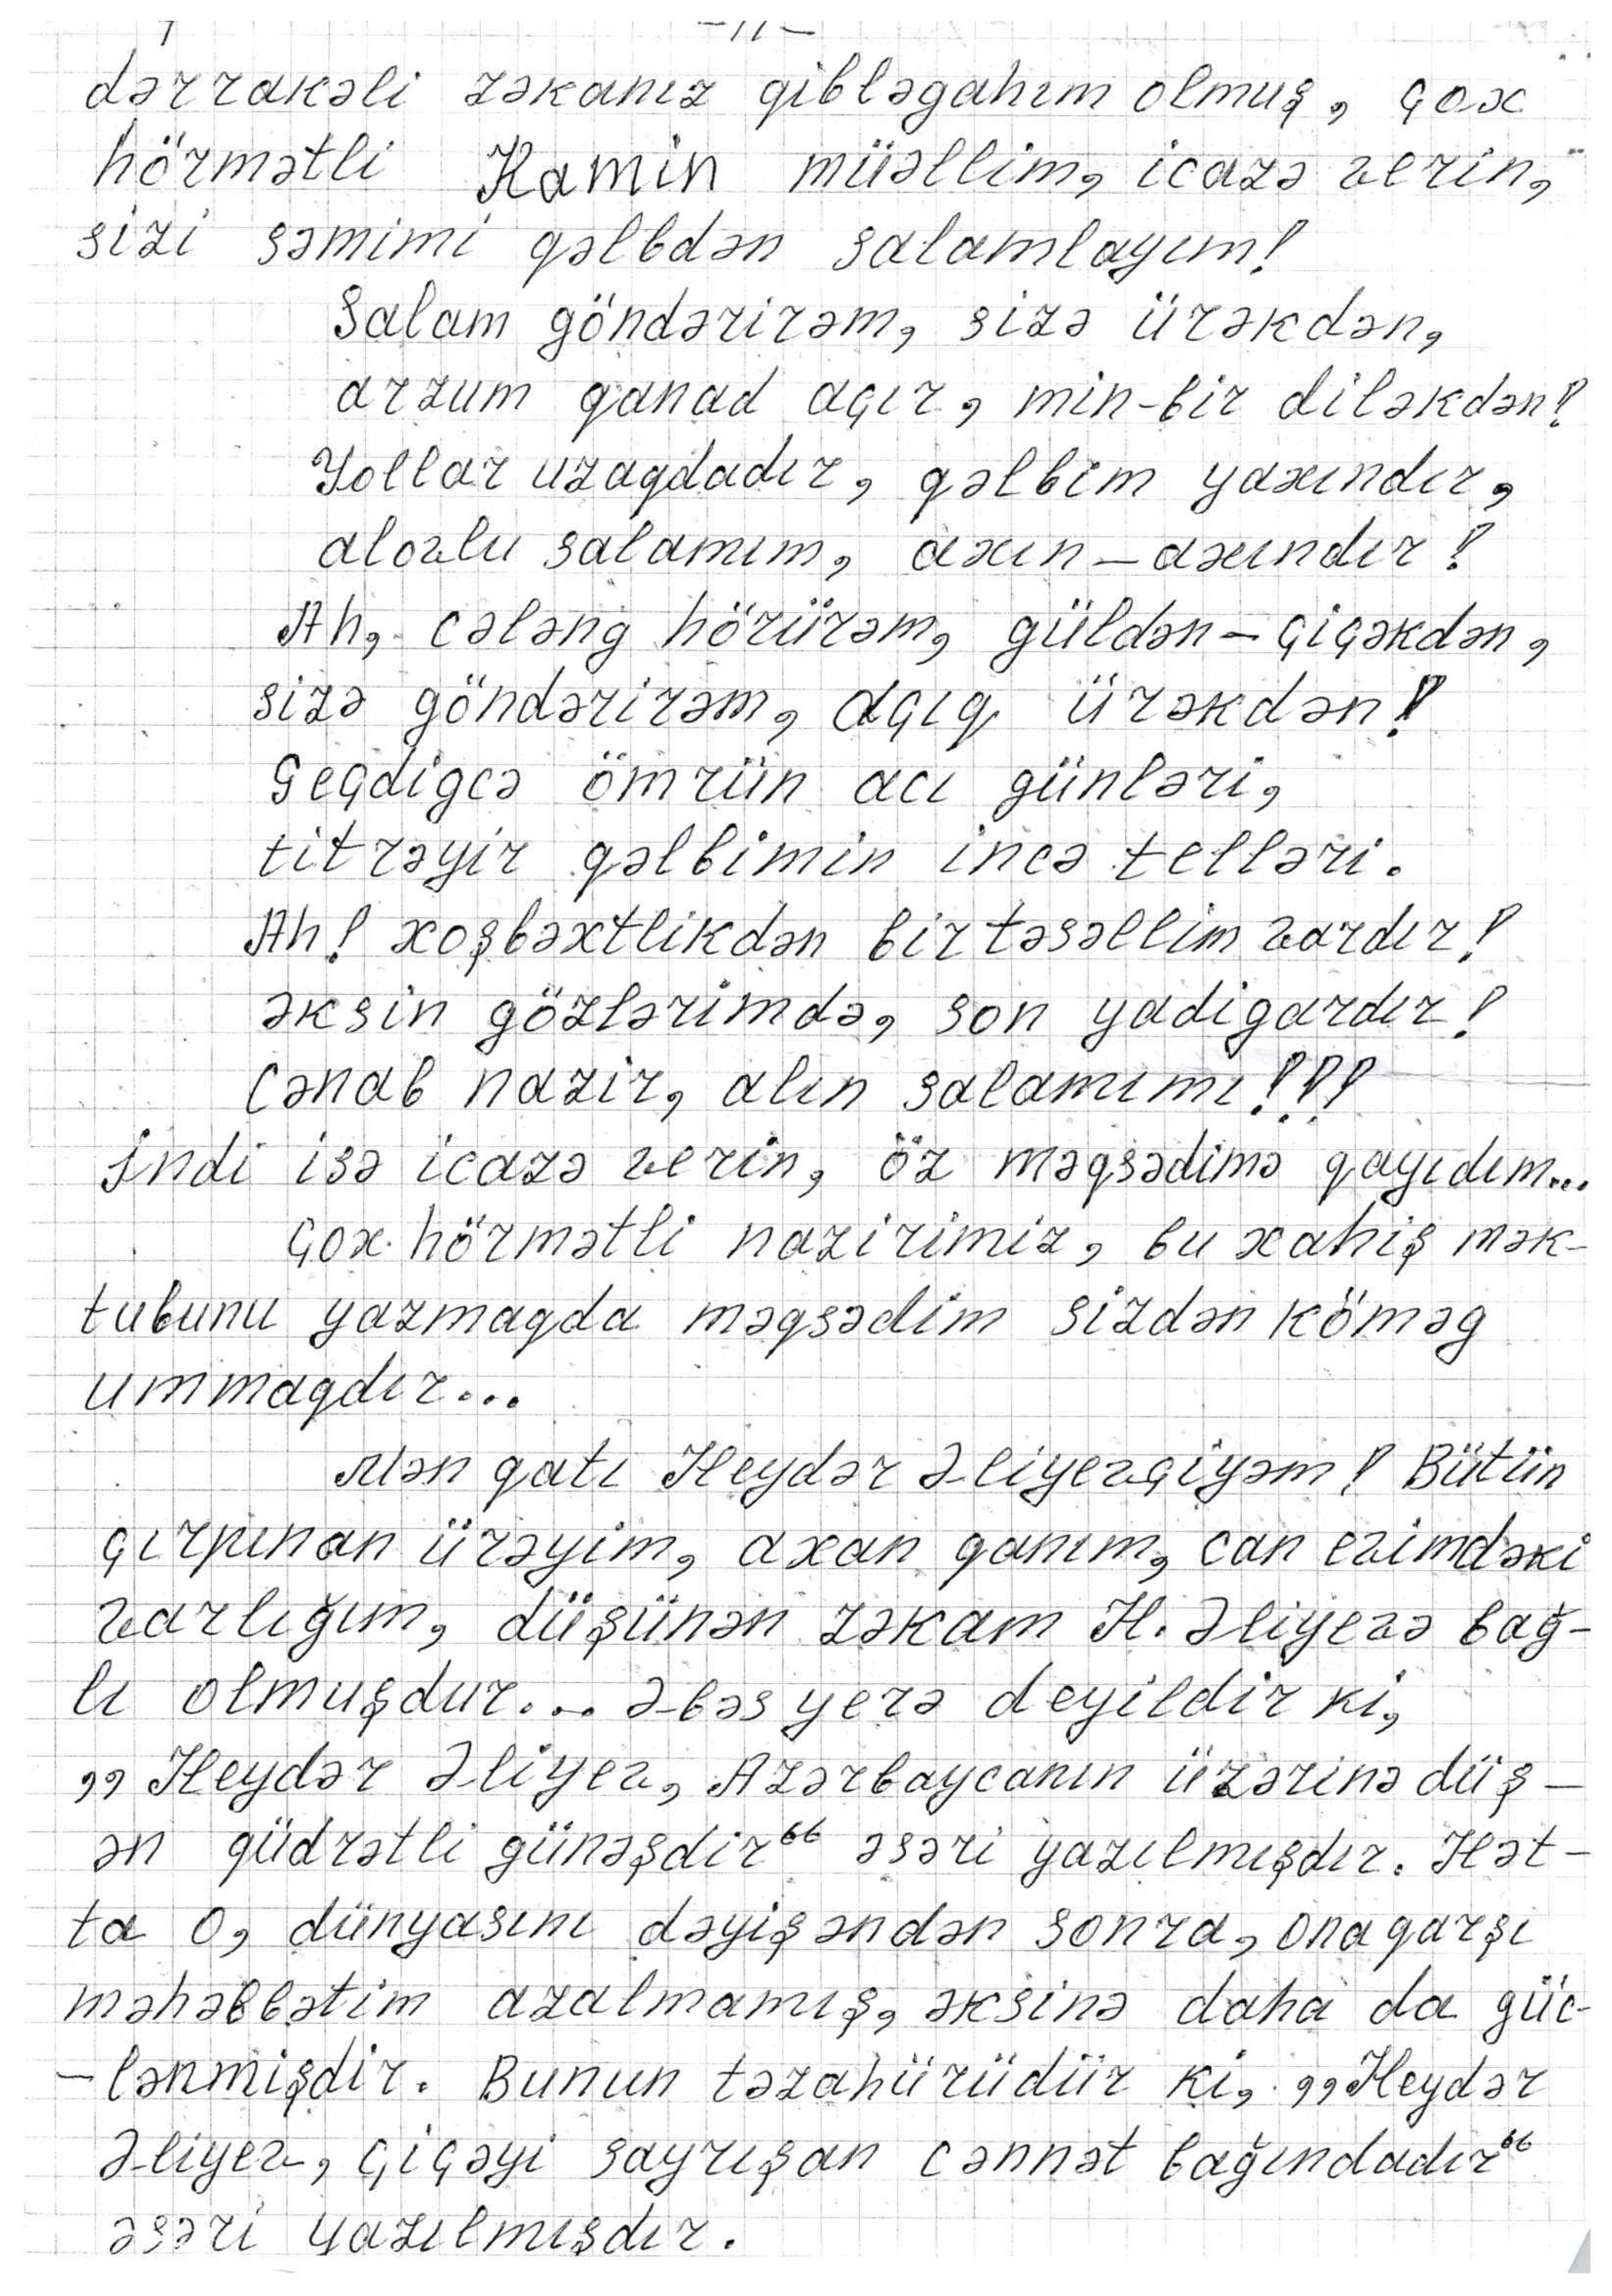 -11-
dərrakəli zəkanız qibləgahım olmuş, çox
hörmətli Kamin müəllim, icazə verin,
sizi səmimi qəlbdən salamlayım!
Salam göndərirəm, sizə ürəkdən,
arzum qanad açır, min-bir diləkdən!
Yollar uzaqdadır, qəlbim yaxındır,
alovlu salamım, axın-axındır!
Ah, cələng hörürəm, güldən-çiçəkdən,
sizə göndərirəm, açıq ürəkdən!
Geçdigcə ömrün acı günləri,
titrəyir qəlbimin incə telləri.
Ah! xoşbəxtlikdən bir təsəllim vardır!
əksin gözlərimdə, son yadigardır!
Cənab nazir, alın salamımı!!!
İndi isə icazə verin, öz məqsədimə qayıdım...
Çox hörmətli nazirimiz, bu xahiş mək-
tubunu yazmaqda məqsədim sizdən köməg
ummaqdır...
Mən qatı Heydər Əliyevçiyəm! Bütün
çırpınan ürəyim, axan qanım, can evimdəki
varlığım, düşünən zəkam H. Əliyevə bağ-
lı olmuşdur... Əbəs yerə deyildir ki,
,,Heydər Əliyev, Azərbaycanın üzərinə düş-
ən qüdrətli günəşdir“ əsəri yazılmışdır. Hət-
ta o, dünyasını dəyişəndən sonra, ona qarşı
məhəbbətim azalmamış, əksinə daha da güc-
-lənmişdir. Bunun təzahürüdür ki, ,,Heydər
Əliyev, çiçəyi sayrışan cənnət bağındadır“
əsəri yazılmışdır.